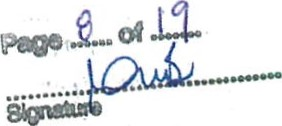 Page 8 of 19
Signature